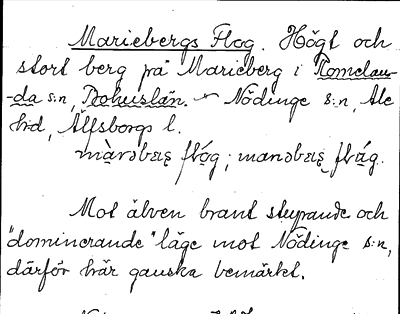 Mariebergs Flog. Högt och
stort berg på Marieberg i Romelan-
-da s:n, Bohuslän. ~ Nödinge s:n, Ale
hd, Älfsborgs l.
Mot älven brant stupande och
"dominerande" läge mot Nödinge s:n,
därför här ganska bemärkt.